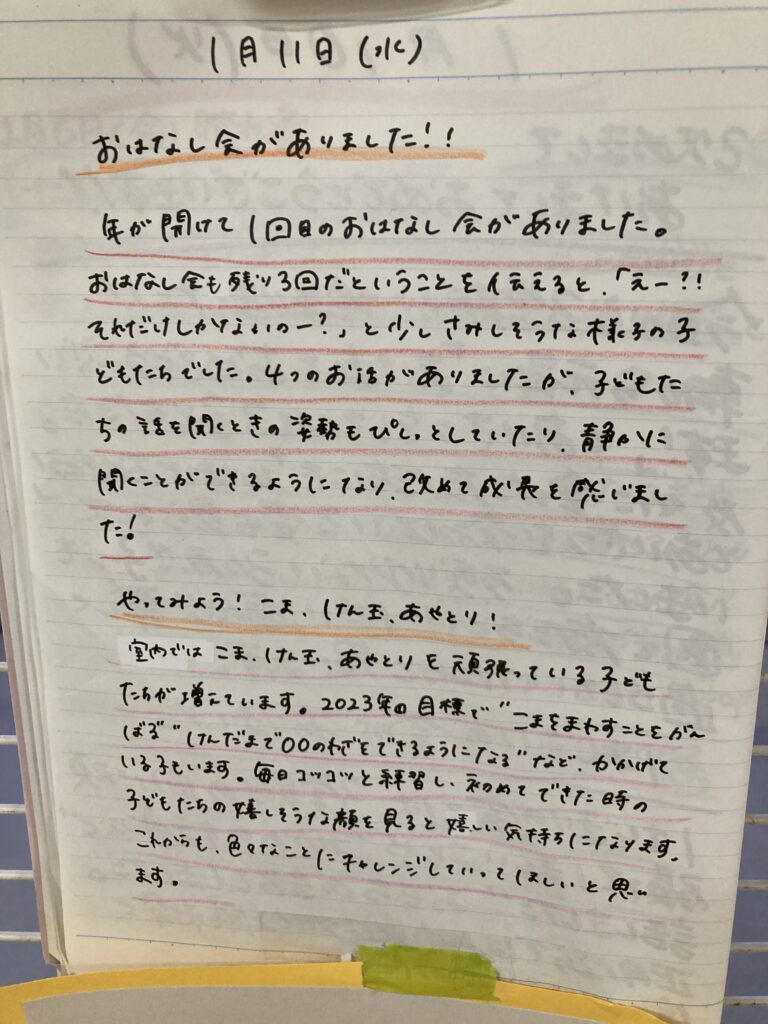 1月11日(水)
おはなし会がありました!!
年が開けて1回目のおはなし会がありました。
おはなし会も残り3回だということを伝えると、「えー?!
それだけしかないのー?」と少しさみしそうな様子の子
どもたちでした。4つのお話がありましたが、子どもた
ちの話を聞くときの姿勢もぴしっとしていたり、静かに
聞くことができるようになり、改めて成長を感じまし
た!
やってみよう!こま、けん玉、あやとり!
室内では こま、けん玉、あやとりを頑張っている子ども
たちが増えています。2023年の目標で"こまをまわすことをがん
ばる""けんだまで〇〇のわざをできるようになる"など、かかげて
いる子もいます。毎日コツコツと練習し、初めてできた時の
子どもたちの嬉しそうな顔を見ると嬉しい気持ちになります。
これからも、色々なことにチャレンジしていってほしいと思い
ます。